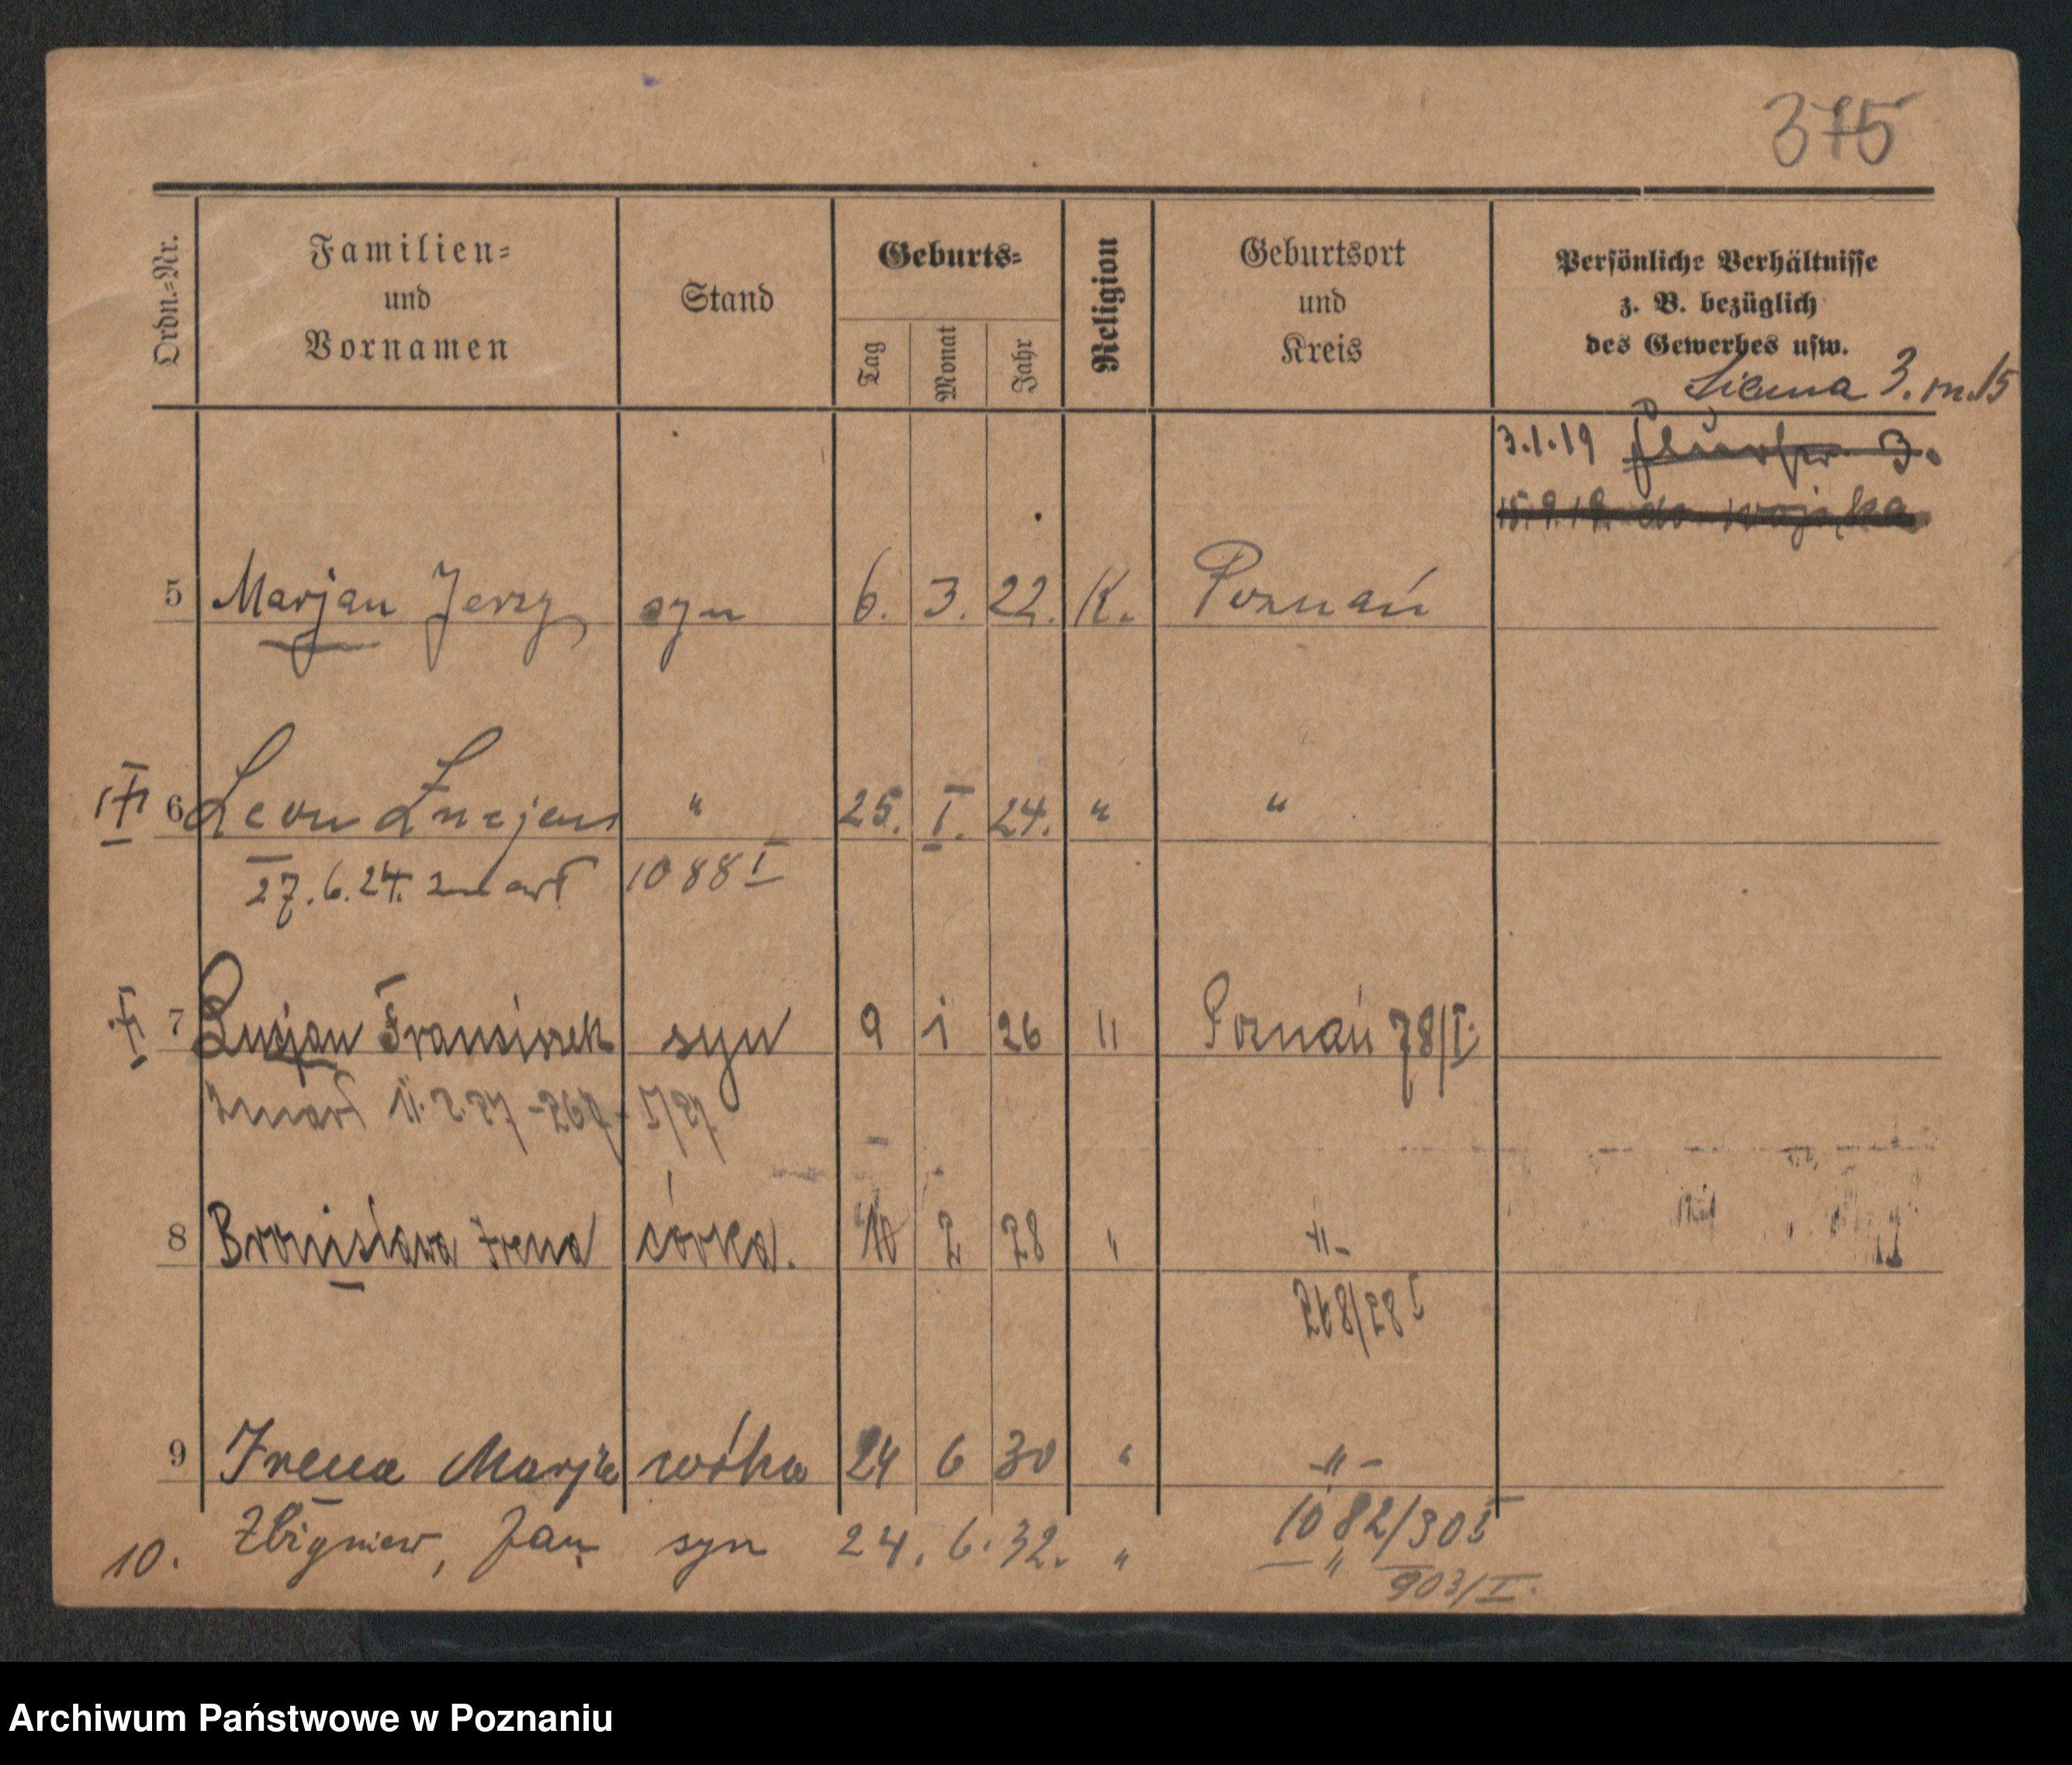 375
Ordn.=Nr.
Familien=
und
Vornamen
Stand
Geburts=
Tag
Monat
Jahr
Religion
Geburtsort
und
Kreis
Persönliche Verhältnisse
z. B. bezüglich
des Gewerbes usw.
3. m. 15
3.1.19 3.
do wojska
5 Marjan Jerzy syn 6. 3. 22. K. Poznań
6 Leon " 25. I. 24. " "
27.6.24. zmarł 1088 I
7 Lucjan Franciszek syn 9 1 26 " Poznań 78/I.
zmarł 11.2.27 -267- I/27
8 Bronisława Irena córka. 10 2 28 " -"-
I
9 Irena Marja córka 24 6 30 " -"-
1082/30 I
10. Zbigniew, Jan syn 24. 6. 32. " — " —
903/I.
Archiwum Państwowe w Poznaniu